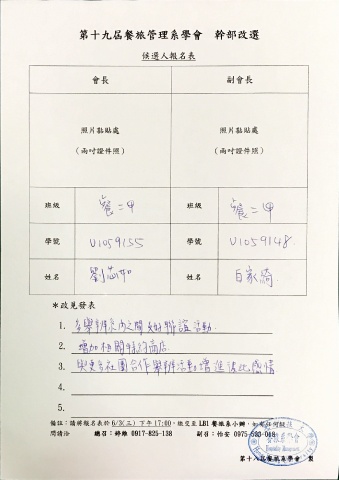 第十九屆餐旅管理系學會 幹部改選
候選人報名表
會長 副會長
照片黏貼處 照片黏貼處
(兩吋證件照) (兩吋證件照)
班級 餐二甲 班級 餐二甲
學號 U1059155 學號 U1059148
姓名 劉芯如 姓名 白家綺
*政見發表
1. 多舉辦系內之間的聯誼活動
2. 增加相關特約商店
3. 與更多社團合作舉辦活動增進彼此感情
4.
5.
備註:請將報名表於 6/3(三)下午17:00,繳交至 LB1 餐旅系小櫃,如有任何疑
問請洽 總召:婷維 0917-825-138 副召:怡安 0975-530-068
第十八屆餐旅系學會 製